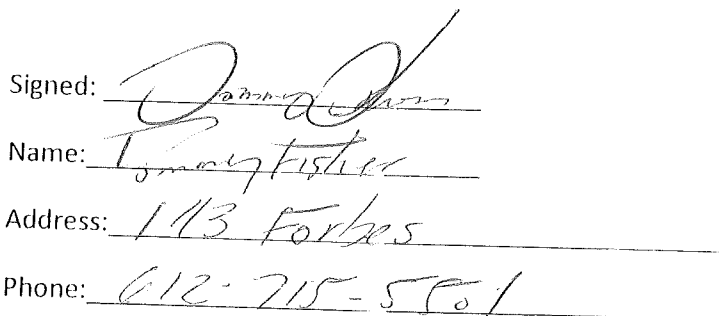 Signed: Tommy
Name: Tommy Fisher
Address: 1113 Forbes
Phone: 612-715-5801